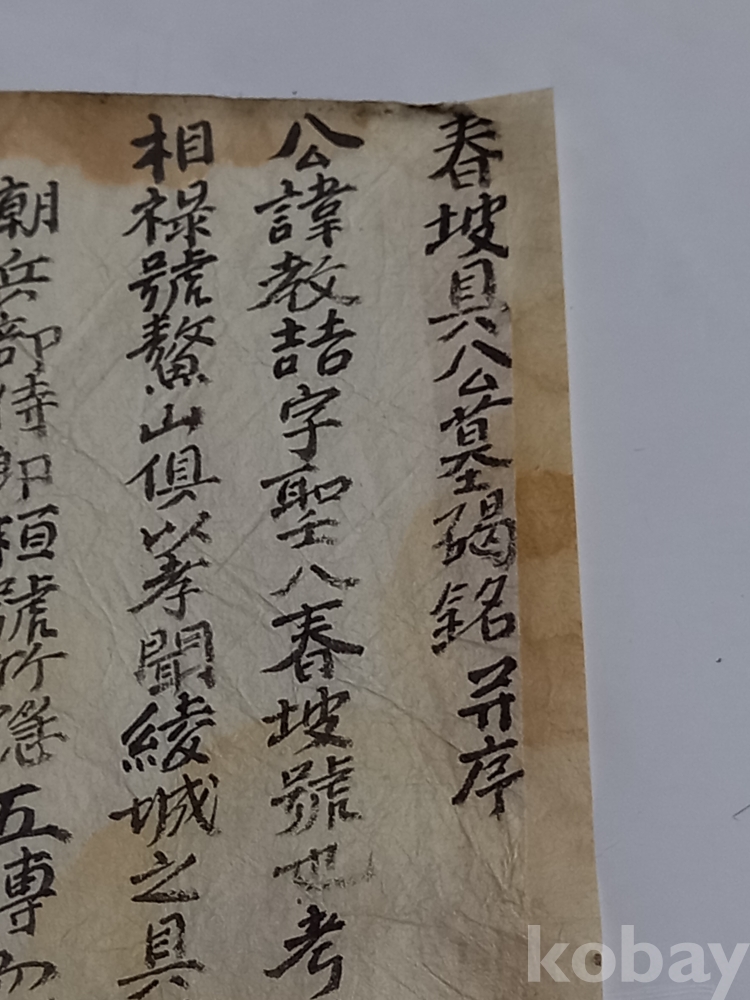 春坡具公墓碣銘并序
公諱教喆字聖八春坡號也考
相祿號鰲山俱以孝聞綾城之具
朝兵部侍郎禎號竹隱五專
kobay